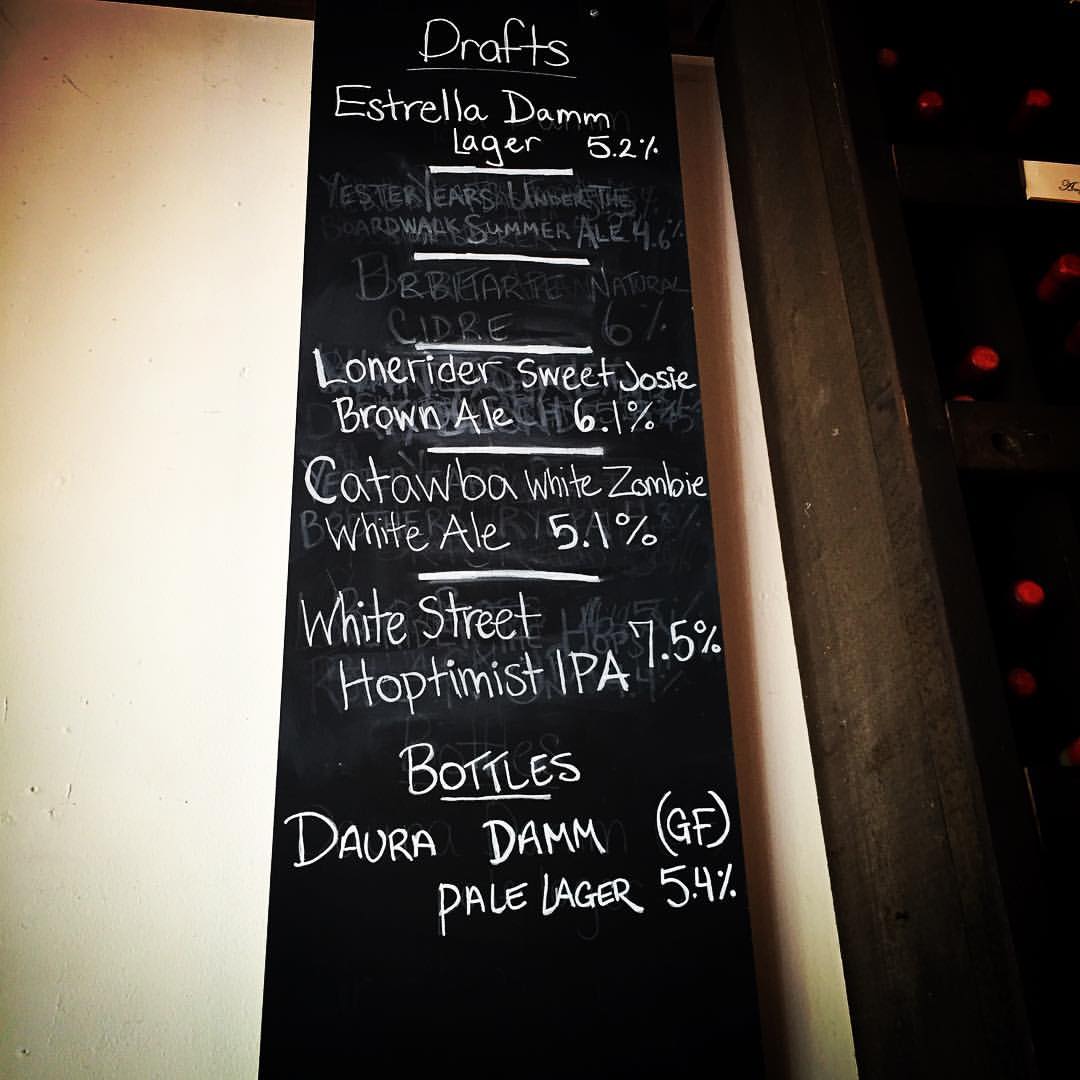 Drafts
Estrella Damm
Lager 5.2%
YESTERYEARS UNDER THE
BOARDWALK SUMMER ALE 4.6%
NATURAL
CIDRE 6%
Lonerider Sweet Josie
Brown Ale 6.1%
Catawba White Zombie
White Ale 5.1%
White Street 7.5%
Hoptimist IPA
BOTTLES
DAURA DAMM (GF)
PALE LAGER 5.4%